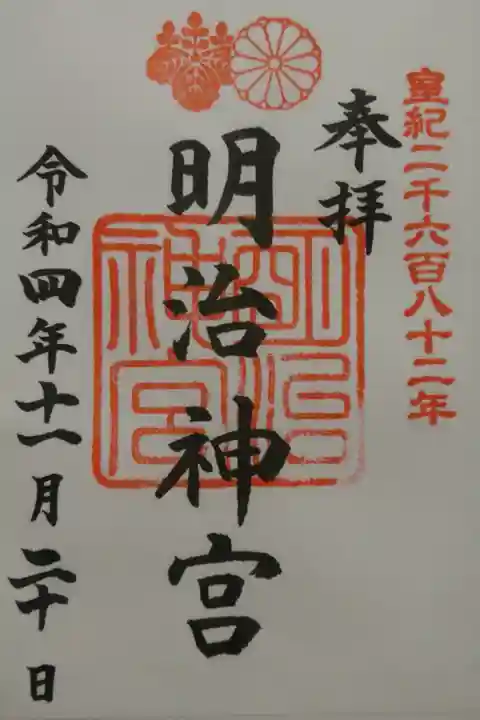 皇紀二千六百八十二年
奉拝
明治神宮
明治神宮
令和四年十一月二十日